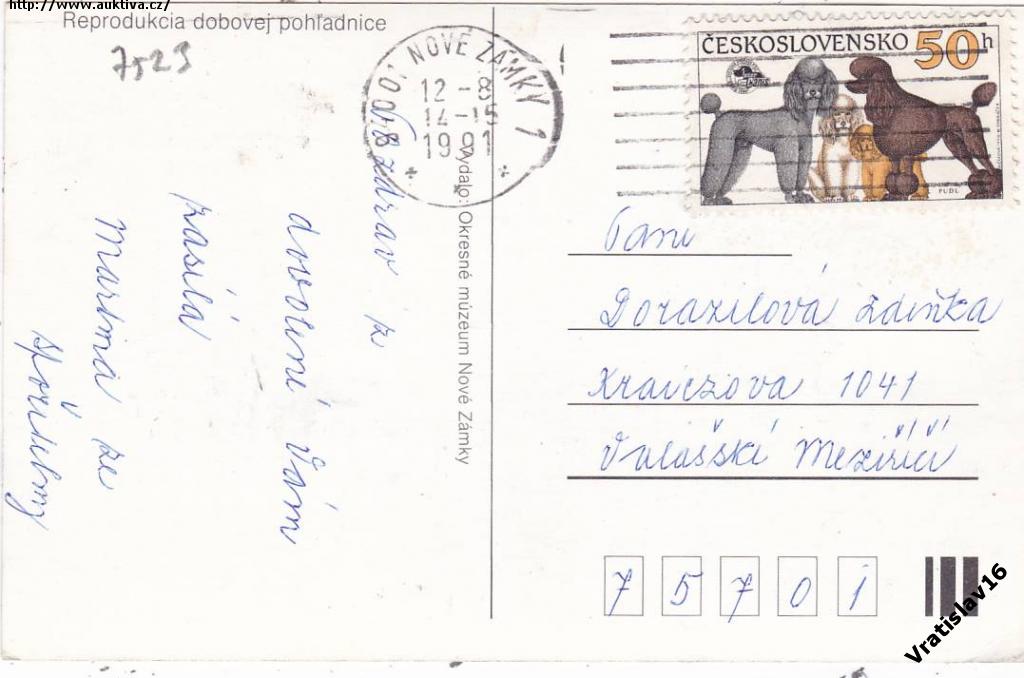 http://www.auktiva.cz/
Reprodukcia dobovej pohľadnice
7523
NOVÉ ZÁMKY 1
12 - 8
14 - 15
1991
ČESKOSLOVENSKO 50h
PUDL
Pozdrav z
dovolené Vám
zasílá
Martina ze
Vydalo: Okresné múzeum Nové Zámky
Paní
Dorazilová Zdeňka
1041
Valašské Meziříčí
7 5 7 0 1
Vratislav16